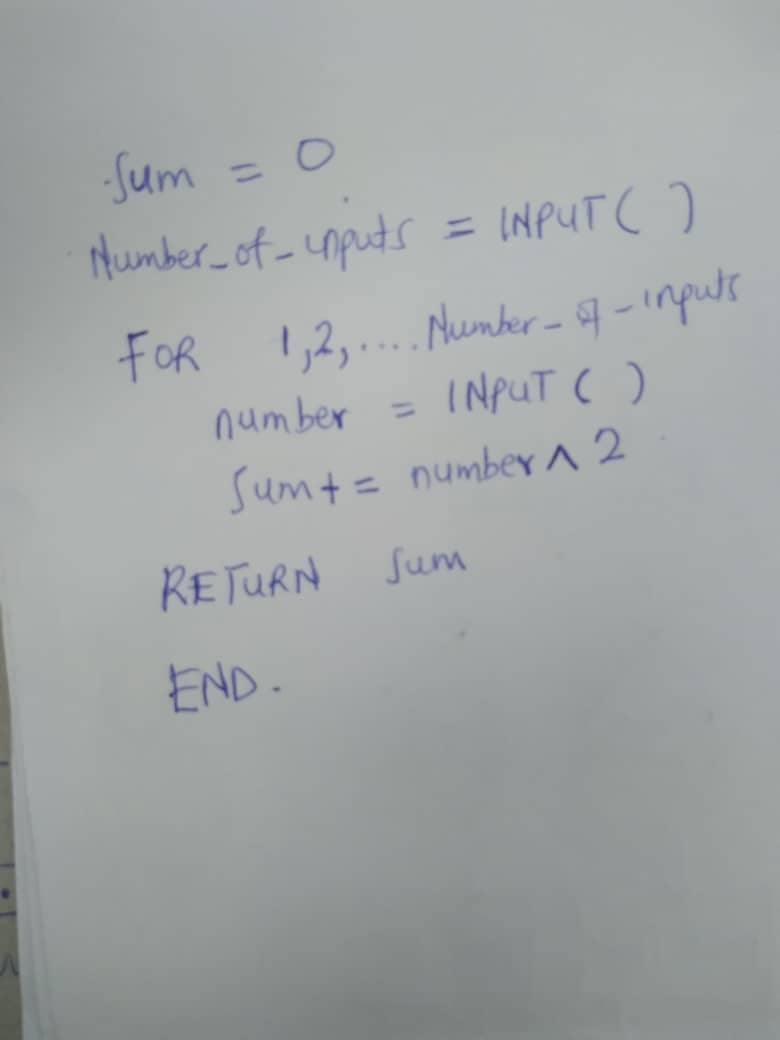 Sum = 0
Number_of_inputs = INPUT( )
FOR 1,2,.... Number_of_inputs
number = INPUT ( )
Sum+= number ^ 2
RETURN Sum
END.